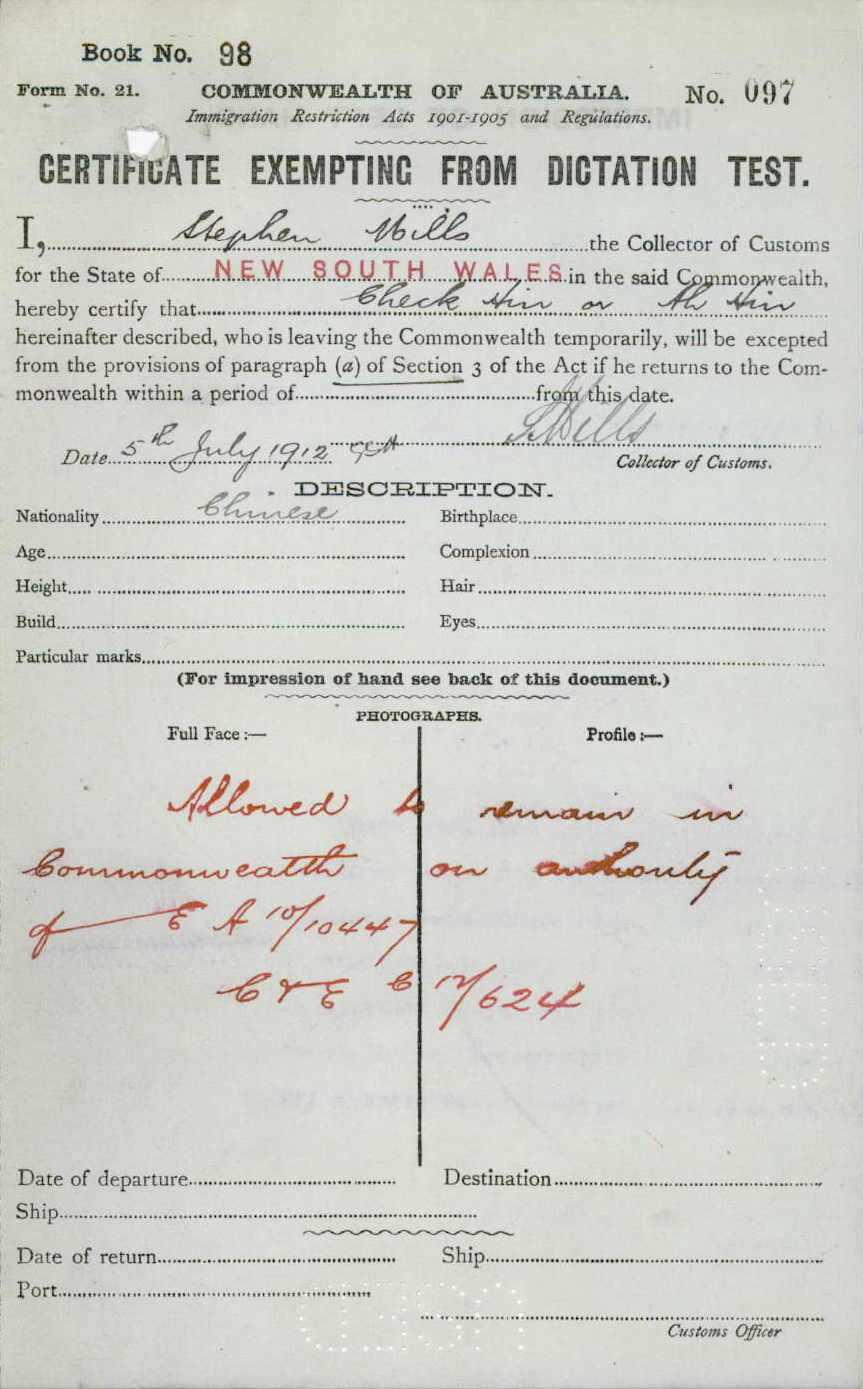 Book No. 98
Form No. 21. COMMONWEALTH OF AUSTRALIA. No. 097
Immigration Restriction Acts 1901-1905 and Regulations.
CERTIFICATE EXEMPTING FROM DICTATION TEST.
I, Stephen Mills the Collector of Customs
for the State of NEW SOUTH WALES in the said Commonwealth,
hereby certify that Check Hin or Ah Hin
hereinafter described, who is leaving the Commonwealth temporarily, will be excepted
from the provisions of paragraph (a) of Section 3 of the Act if he returns to the Com-
monwealth within a period of from this date.
S Mills
Date 5th July 1912
Collector of Customs.
DESCRIPTION.
Nationality Chinese Birthplace
Age Complexion
Height Hair
Build Eyes
Particular marks
(For impression of hand see back of this document.)
PHOTOGRAPHS.
Full Face :— Profile :—
Allowed to remain in
Commonwealth on authority
of E A 10/10447
C & E C 12/624
Date of departure Destination
Ship
Date of return Ship
Port
Customs Officer